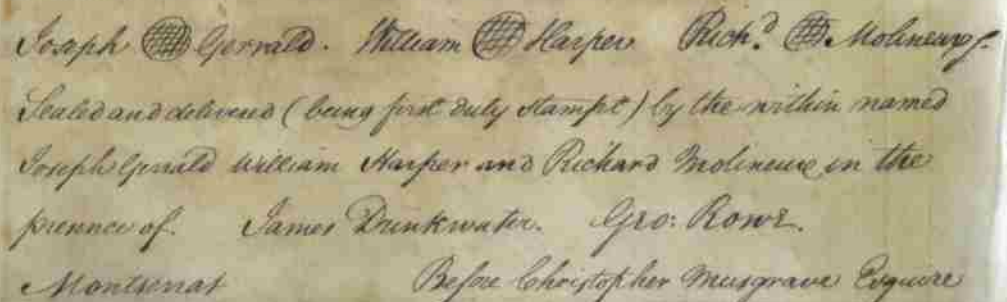 Joseph Gerrald. William Harper Rich.d Molineux
Sealed and delivered (being first duly stampt) by the within named
Joseph Gerrald William Harper and Richard Molineux in the
presence of. James Drinkwater. Geo: Rowe.
Montserrat Before Christopher Musgrave Esquire